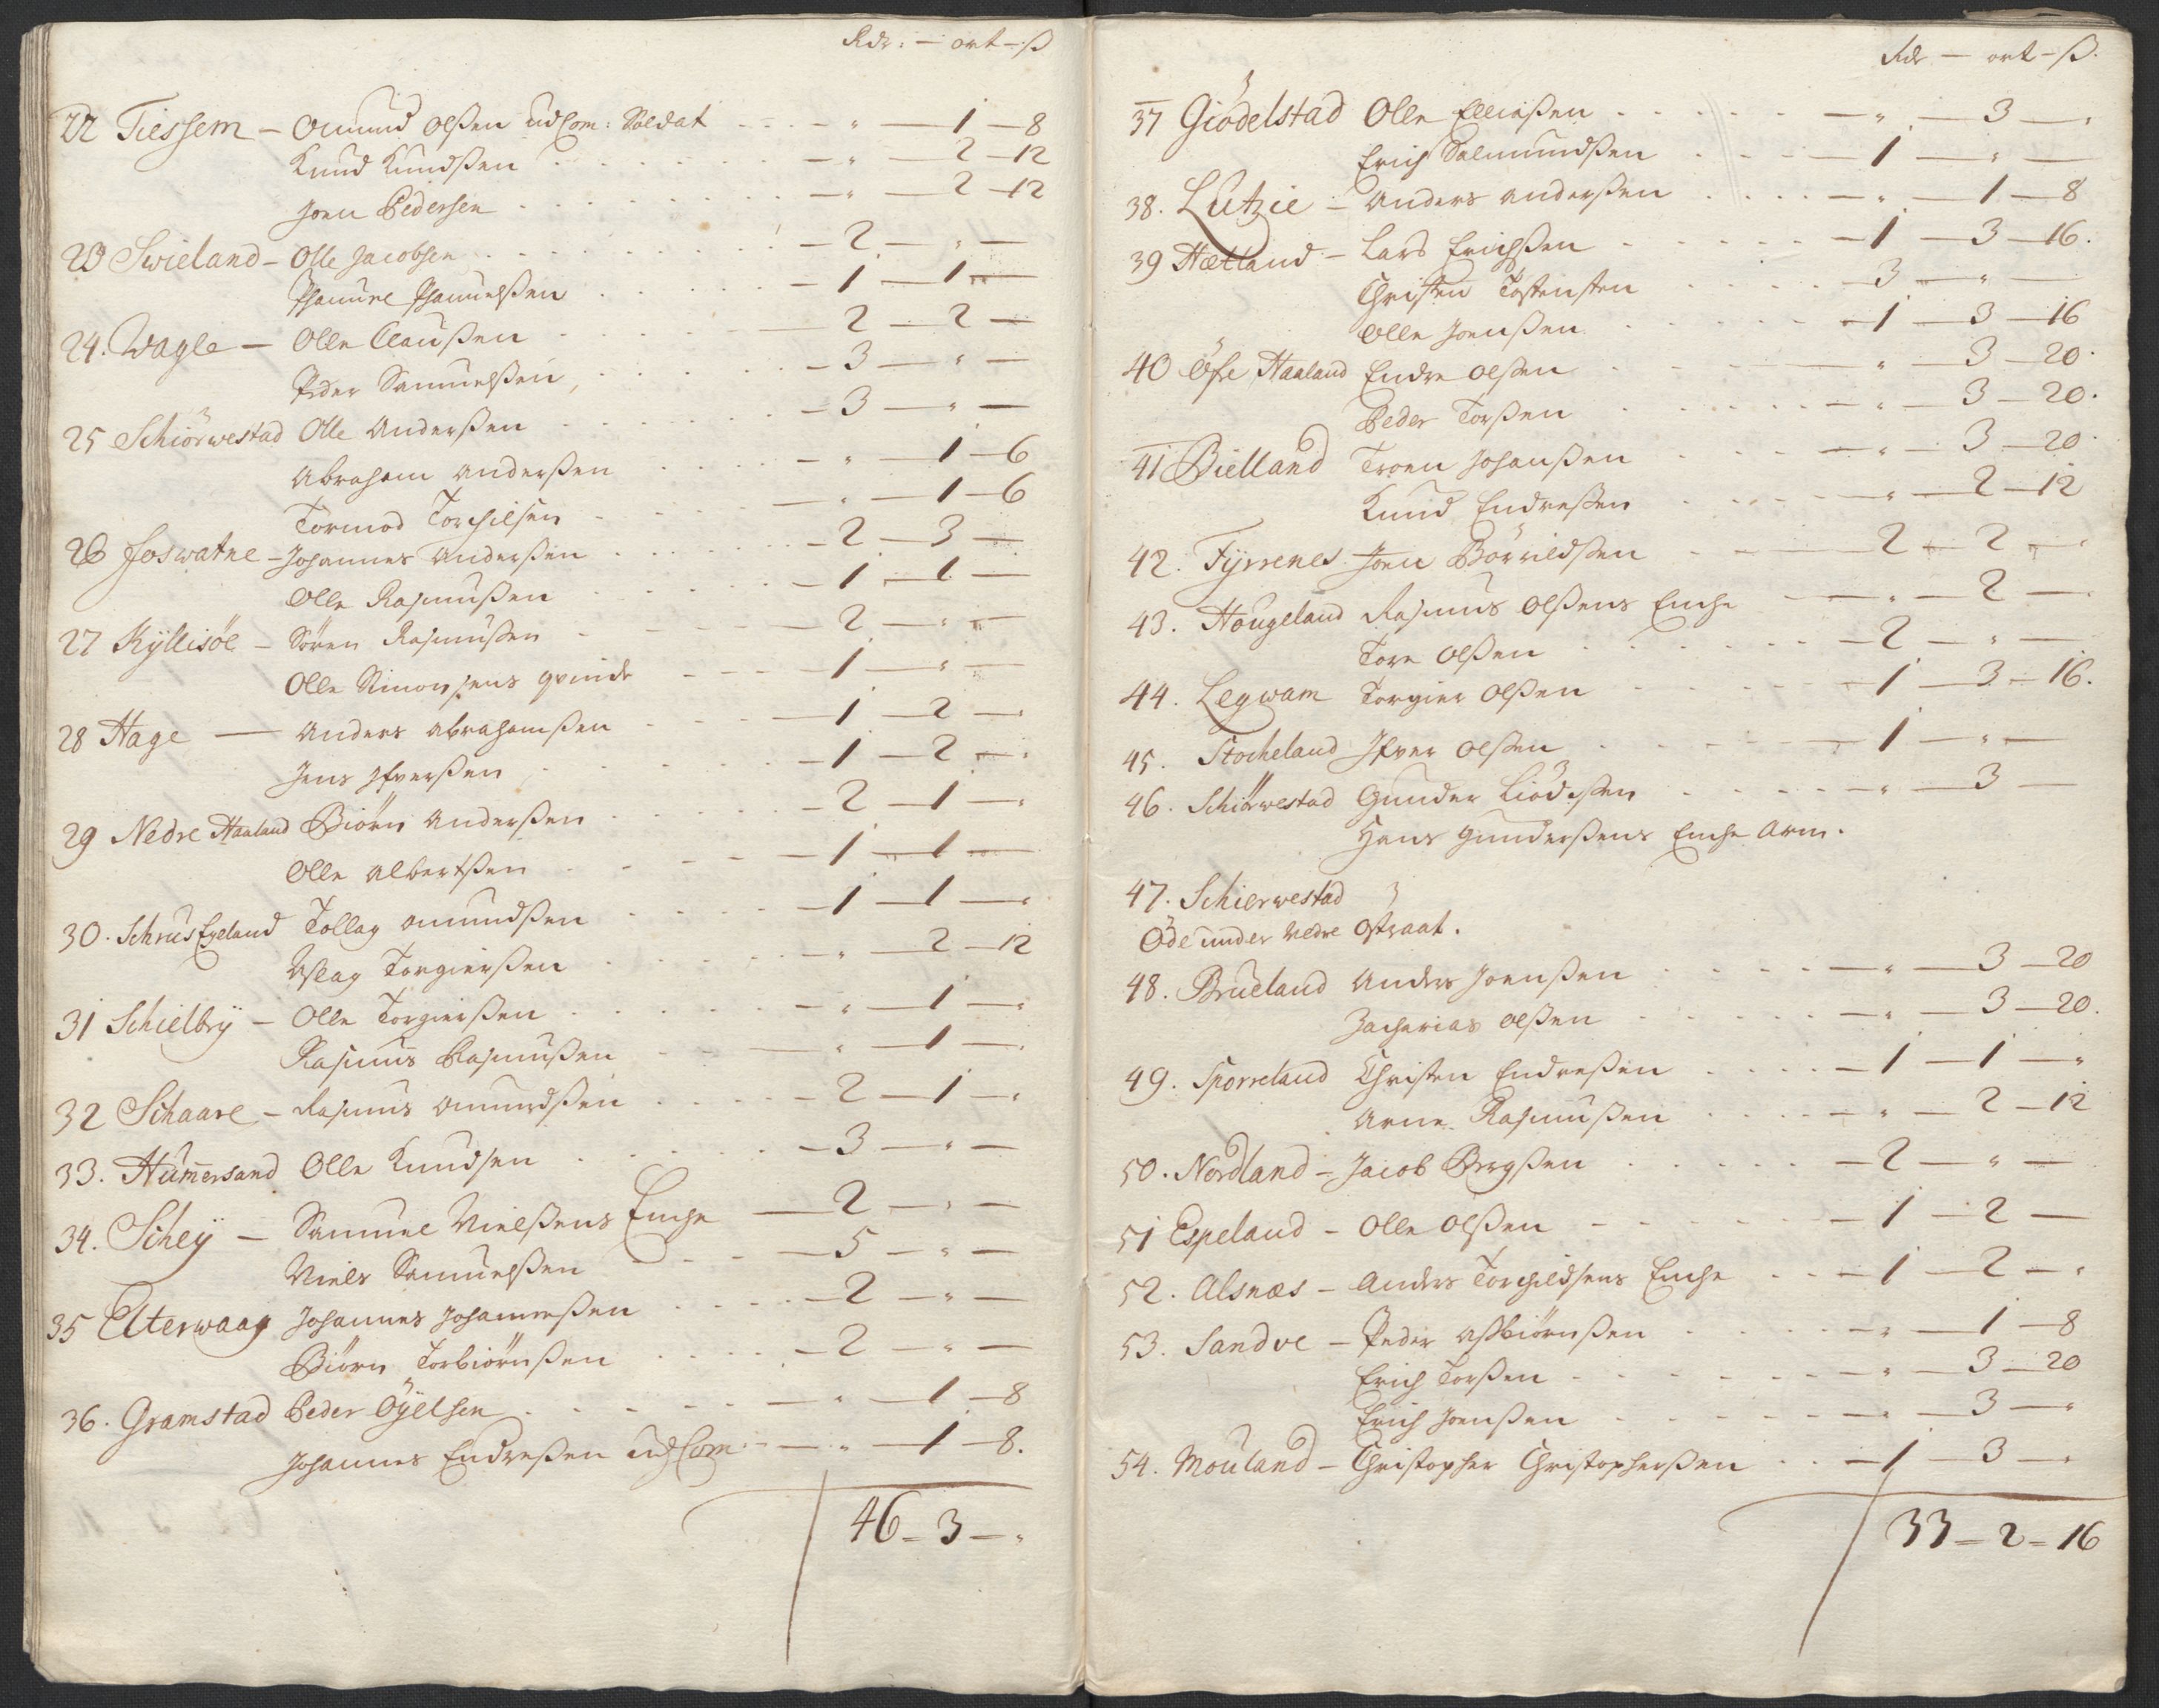 Rdr: — ort — ß
22 Tiessem — Omund Olßen udCom: Soldat - - - „ — 1 — 8
Knud Knudsßen - - - „ — 2 — 12
Joen Pedersen - - - „ — 2 — 12
23 Swieland — Olle Jacobsen - - - 2 — „ —
Shamuel Shamuelßen - - - 1 — 1 —
24. Wagle — Olle Claußen - - - 2 — 2 —
Peder Samuelßen, - - - 3 — „ —
25 Schiörwestad Olle Anderßen - - - 3 — „ —
Abraham Anderßen - - - „ — 1 — 6
Tormod Torchilsen - - - „ — 1 — 6
26 Joswatne — Johannes Anderßen - - - 2 — 3 —
Olle Rasmußen - - - 1 — 1 —
27 Kÿllisöe — Sören Rasmußen - - - 2 — „ —
Olle Simonsens qvinde - - - 1 — „ —
28 Hage — Anders Abrahamßen - - - 1 — 2 — „
Jens Ifverßen - - - 1 — 2 — „
29 Nedre Haaland Biörn Anderßen - - - 2 — 1 — „
Olle Albertßen - - - 1 — 1 —
30. Schrus Egeland Tollag Omundßen - - - 1 — 1 — „
Aslag Torgierßen - - - „ — 2 — 12
31 Schielbrÿ — Olle Torgierßen - - - „ — 1 — „
Rasmus Rasmußen - - - „ — 1 — „
32 Schaare — Rasmus Omundßen - - - 2 — 1 — „
33. Hummersand Olle Knudsen - - - 3 — „ —
34. Scheÿ — Samuel Nielßens Enche — 2 — „ —
Niels Samuelßen - - - 5 — „ —
35 Elterwaag Johannes Johanneßen - - - 2 — „ —
Biörn Torbiörnßen - - - 2 — „ —
36. Gramstad Peder Öÿelsen - - - „ — 1 — 8
Johannes Endreßen udCom - - - „ — 1 — 8.
46 — 3 — „
Rdr — ort — ß.
37 Giödelstad Olle Ellingßen - - - „ — 3 — „
Erich Salmundßen - - - 1 — „ —
38. Lutzie — Anders Anderßen - - - „ — 1 — 8
39 Hætland — Lars Erichßen - - - 1 — 3 — 16.
Christen Tostensten - - - 3 — „ —
Olle Joenßen - - - 1 — 3 — 16
40 Öfre Haaland Endre Olßen - - - „ — 3 — 20.
Peder Torßen - - - „ — 3 — 20.
41 Bielland Troen Johanßen - - - „ — 3 — 20.
Knud Endreßen - - - „ — 2 — 12
42. Fÿrrenes Joen Börrildßen - - - 2 — 2 — „
43. Hougeland Rasmus Olßens Enche - - - „ — 2 — „
Tore Olßen - - - 2 — „ —
44. Legwam Torgier Olßen - - - 1 — 3 — 16.
45. Stocheland Ifver Olßen - - - 1 — „ —
46. Schiörwestad Gunder Liödßen - - - „ — 3 —
Hans Gunderßens Enche Arm.
47. Schierwestad
Öde under Nedre Östraat.
48. Brueland Anders Joenßen - - - „ — 3 — 20
Zacharias Olßen - - - „ — 3 — 20.
49. Sporreland Christen Endreßen - - - 1 — 1 — „
Arne Rasmußen - - - „ — 2 — 12
50. Nordland — Jacob Bergßen - - - 2 — „ —
51 Espeland — Olle Olßen - - - 1 — 2 —
52. Alsnæs — Anders Torchildsens Enche - - - 1 — 2 — „
53. Sandve — Peder Asbiörnßen - - - „ — 1 — 8
Erich Torßen - - - „ — 3 — 20
Erich Joenßen - - - „ — 3 — „
54. Mouland — Christopher Christopherßen - - - 1 — 3 — „
33 — 2 — 16